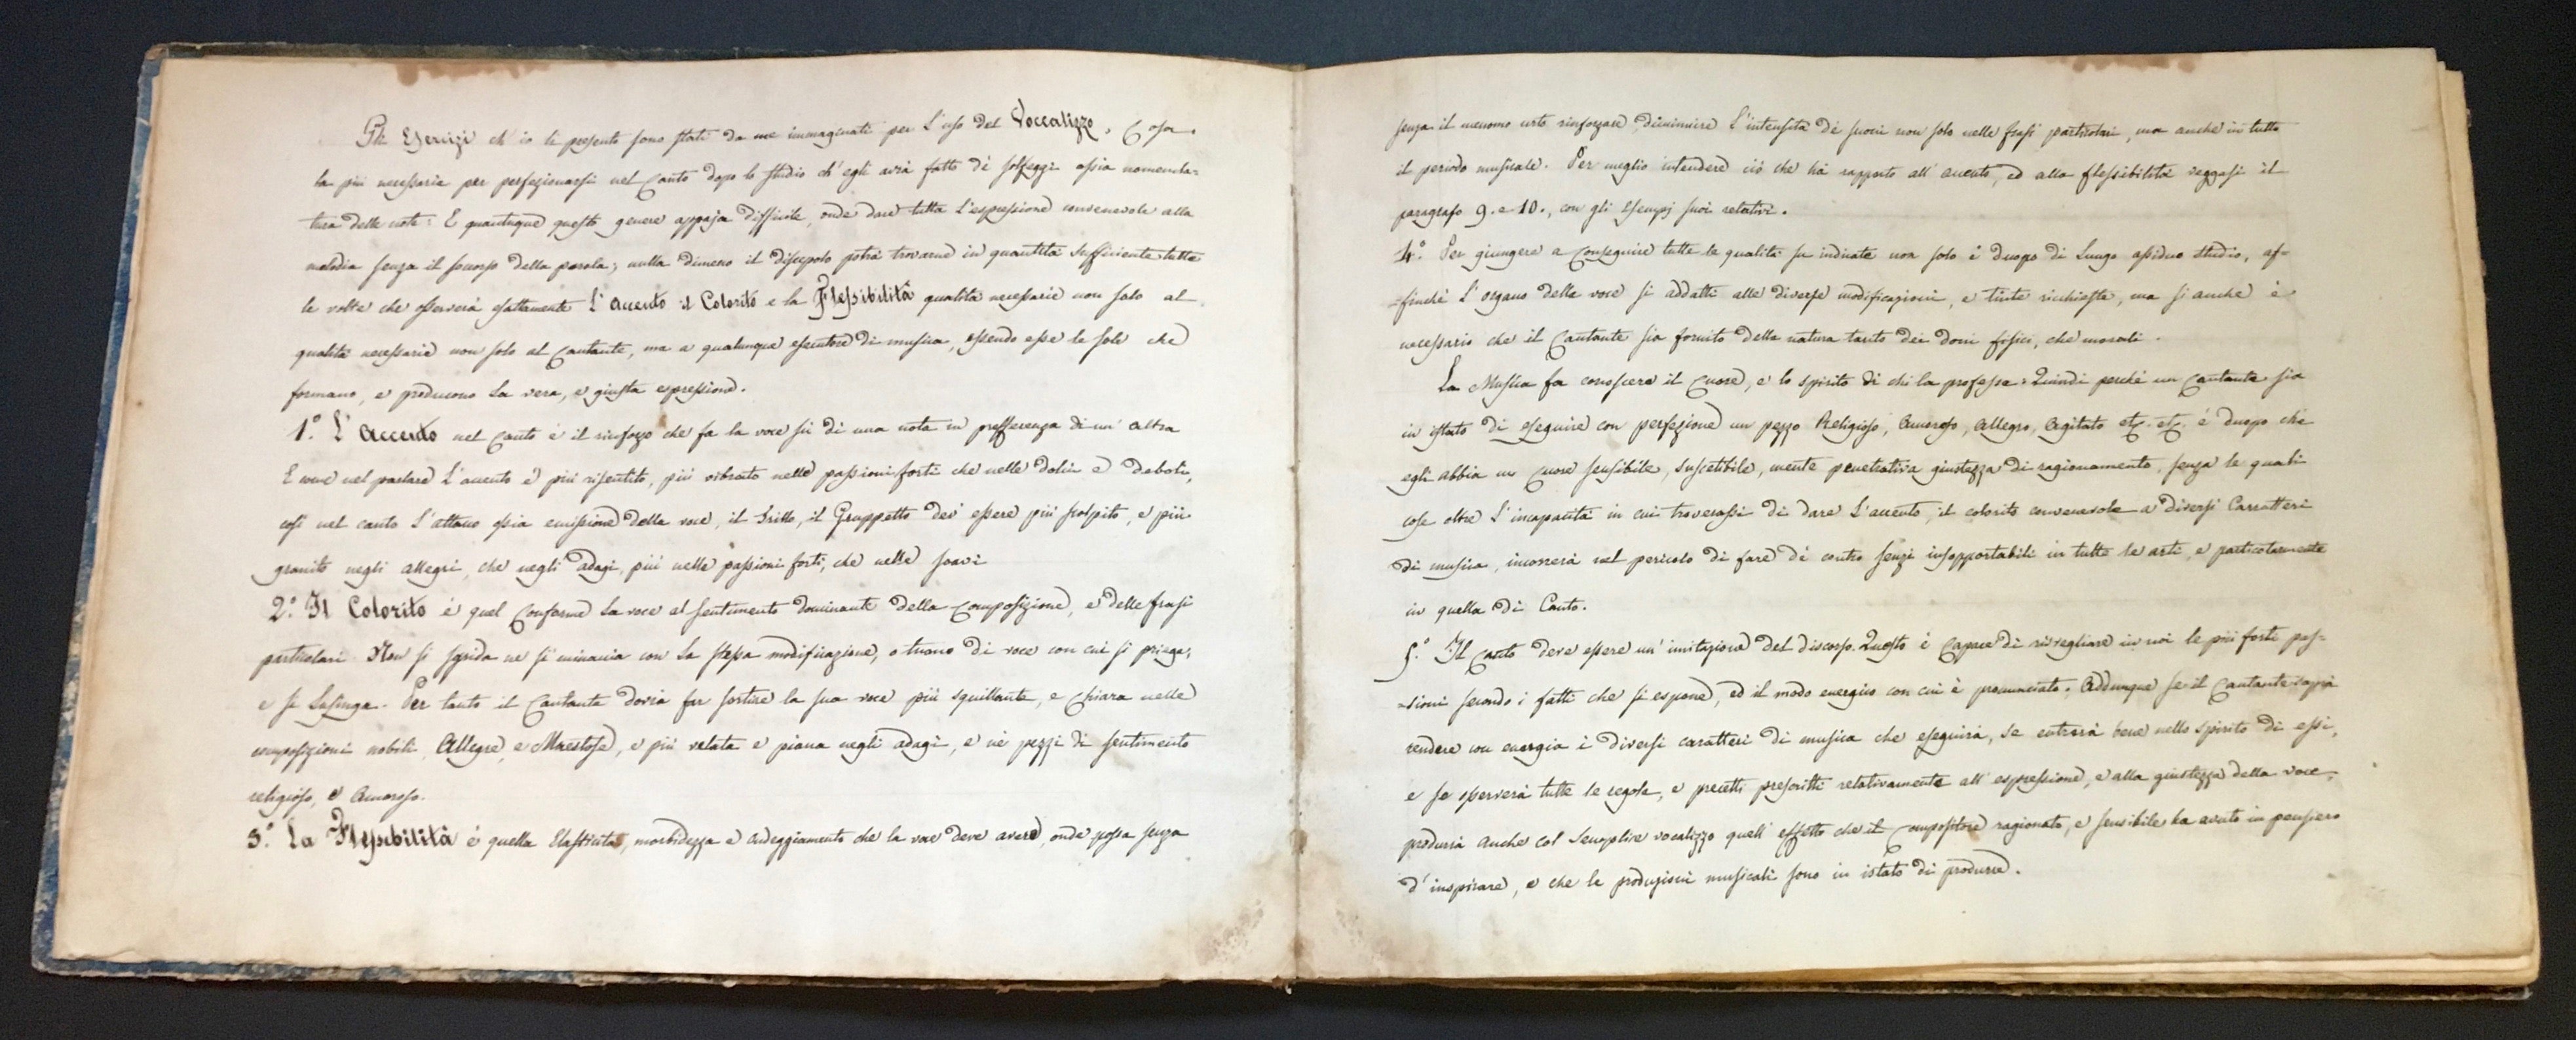 Gli Esercizj ch' io ti presento sono stati da me immaginati per l'uso del Voccalizzo, Cosa
la più necessaria per perfezionarsi nel Canto dopo lo studio ch' egli avrà fatto di solfeggi ossia nomencla=
tura delle note: E quantuque questo genere appaja difficile, onde dare tutta l'espressione convenevole alla
melodia senza il soccorso della parola; nulla dimeno il discepolo potrà trovarne in quantità sufficiente tutte
le volte che osserverà esattamente l'Accento il Colorito e la Flessibilità qualità necessarie non solo al
qualità necessarie non solo al Cantante, ma a qualunque esecutore di musica, essendo esse le sole che
formano, e producono la vera, e giusta espressione.
1.° L'Accento nel Canto è il rinforzo che fa la voce su di una nota in prefferenza di un' altra
E come nel parlare l'accento è più risentito, più vibrato nelle passioni forti che nelle dolci e deboli,
così nel canto l'attacco ossia emissione della voce, il Trillo, il Gruppetto dev' essere più scolpito, e più
granito negli allegri, che negli adagi, più nelle passioni forti, che nelle soavi
2.° Il Colorito è quel Conforme la voce al sentimento dominante della Composizione, e delle frasi
particolari. Non si sgrida ne si minaccia con la stessa modificazione, o tuono di voce con cui si priega,
e si lusinga. Per tanto il Cantante dovrà far sortire la sua voce più squillante, e Chiara nelle
composizioni nobili, Allegre, e Maestose, e più velata e piana negli adagi, e ne' pezzi di sentimento
religioso, e Amoroso.
3.° La Flessibilità è quella Elasticità, morbidezza e ondeggiamento che la voce deve avere, onde possa senza
senza il menomo urto rinforzare, diminuire l'intensità di suoni non solo nelle frasi particolari, ma anche in tutto
il periodo musicale. Per meglio intendere ciò che hà rapporto all' accento, ed alla flessibilità veggasi il
paragrafo 9. e 10., con gli Esempj suoi relativi.
4.° Per giungere a Conseguire tutte le qualità su indicate non solo è duopo di lungo assiduo studio, af=
=finchè l'organo della voce si addatti alle diverse modificazioni, e tinte richieste, ma si anche è
necessario che il Cantante sia fornito della natura tanto dei doni fisici, che morali.
La Musica fa conoscere il Cuore, e lo spirito di chi la professa: Quindi perchè un Cantante sia
in istato di eseguire con perfezione un pezzo Religioso, Amoroso, Allegro, Agitato etc. etc. è duopo che
egli abbia un Cuore sensibile, suscetibile, mente penetrativa giustezza di ragionamento, senza le quali
cose oltre l'incapacità in cui troverassi di dare l'accento, il colorito convenevole a diversi Carratteri
di musica, incorrerà nel pericolo di fare dei contro senzi insopportabili in tutte le arti, e particolarmente
in quella di Canto.
5.° Il Canto deve essere un' imitazione del discorso. Questo è Capace di risvegliare in noi le più forti pas=
=sioni secondo i fatti che si espone, ed il modo energico con cui è pronunciato; Addunque se il Cantante saprà
rendere con energia i diversi caratteri di musica che eseguirà, se entrerà bene nello spirito di essi,
e se osserverà tutte le regole, e precetti prescritti relativamente all' espressione, e alla giustezza della voce,
produrrà anche col semplice vocalizzo quell' effetto che il Compositore ragionato, e sensibile ha avuto in pensiero
d'inspirare, e che le produzioni musicali sono in istato di produrre.